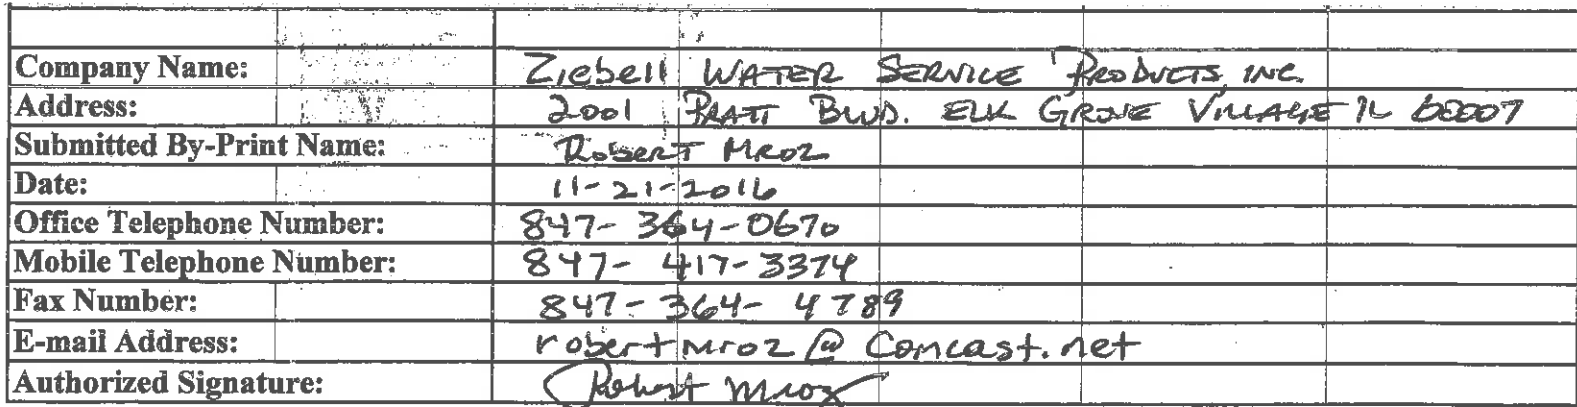 Company Name: Ziebell WATER SERVICE PRODUCTS, INC.
Address: 2001 PRATT BLVD. ELK GROVE VILLAGE IL 60007
Submitted By-Print Name: ROBERT MROZ
Date: 11-21-2016
Office Telephone Number: 847-364-0670
Mobile Telephone Number: 847-417-3374
Fax Number: 847-364-4789
E-mail Address: robertmroz@comcast.net
Authorized Signature: Robert Mroz